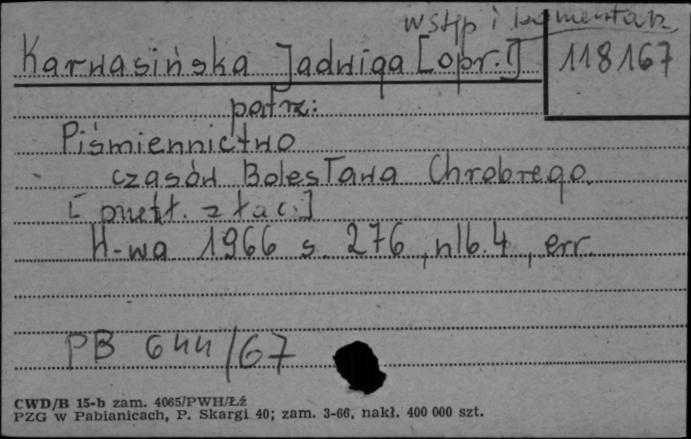 wstęp i komentarz
Karwasińska Jadwiga [opr.!] 118167
patrz:
Piśmiennictwo
czasów Bolesława Chrobrego.
[przekł. z łac.]
W-wa 1966 s. 276, nlb. 4, err.
PB 644/67
CWD/B 15-b zam. 4065/PWH/Łź
PZG w Pabianicach, P. Skargi 40; zam. 3-66, nakł. 400 000 szt.